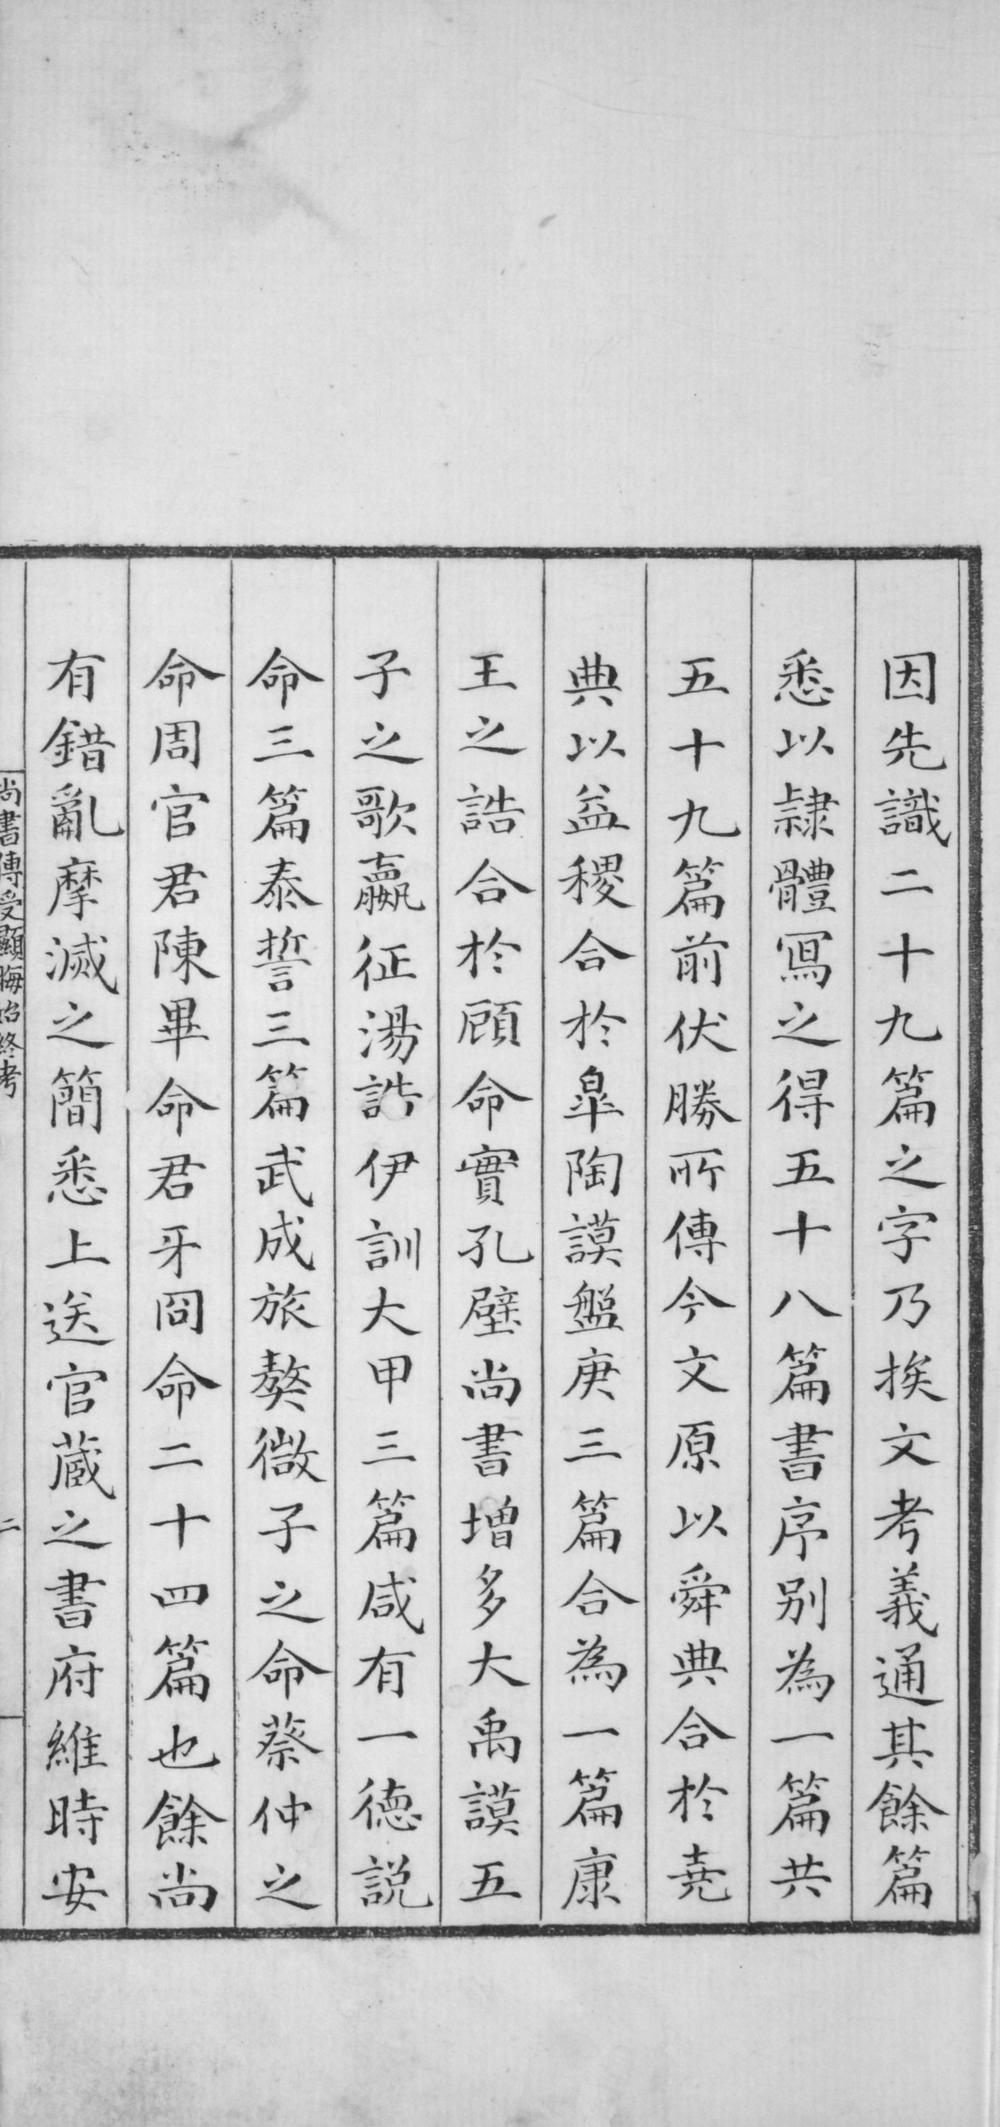 因先識二十九篇之字乃挨文考義通其餘篇
悉以隷體寫之得五十八篇書序别為一篇共
五十九篇前伏勝所傳今文原以舜典合於堯
典以益稷合於皐陶謨盤庚三篇合為一篇康
王之誥合於顧命實孔壁尚書增多大禹謨五
子之歌嬴征湯誥伊訓大甲三篇咸有一德説
命三篇泰誓三篇武成旅獒微子之命蔡仲之
命周官君陳畢命君牙冏命二十四篇也餘尚
有錯亂摩滅之簡悉上送官蔵之書府維時安
尚書傳受顯晦始終考
二